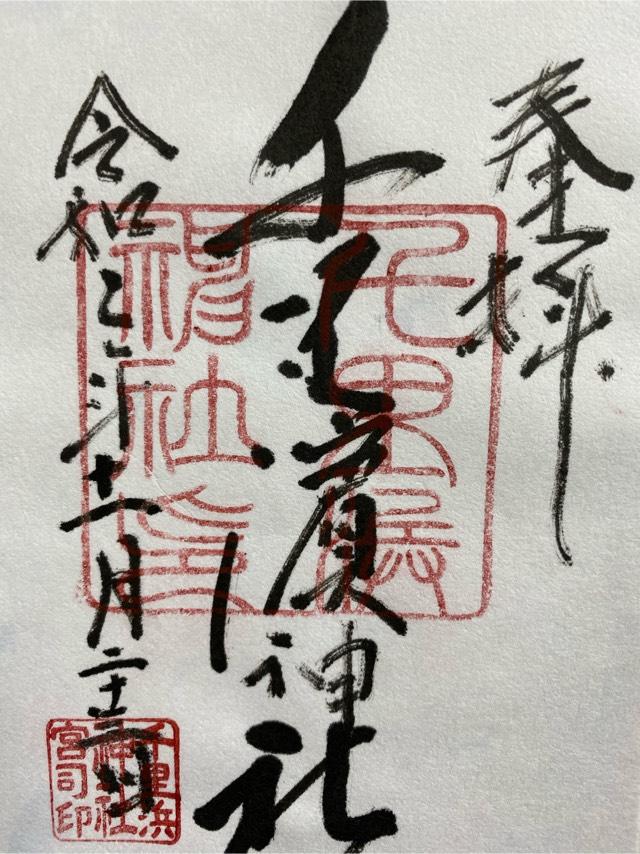 奉拝
千里濱神社
令和三年十一月二十三日
千里濱
神社
千里浜
神社
宮司印